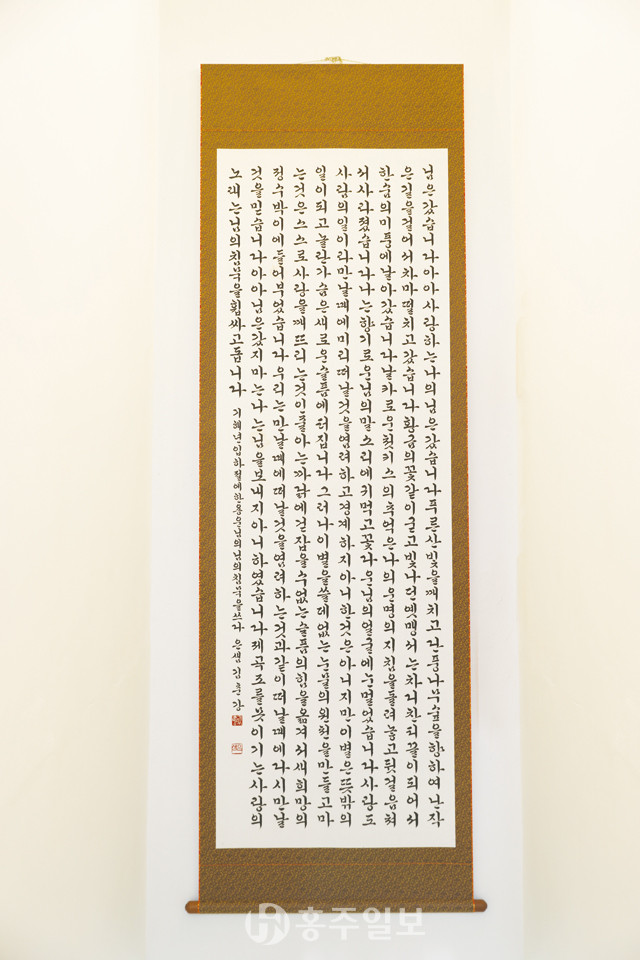 님은갔습니다아아사랑하는나의님은갔습니다푸른산빛을깨치고단풍나무숲을향하여난작
은길을걸어서차마떨치고갔습니다황금의꽃같이굳고빛나던옛맹서는차디찬티끌이되어서
한숨의미풍에날아갔습니다날카로운첫키스의추억은나의운명의지침을돌려놓고뒷걸음쳐
서사라졌습니다나는향기로운님의말소리에귀먹고꽃다운님의얼굴에눈멀었습니다사랑도
사람의일이라만날때에미리떠날것을염려하고경계하지아니한것은아니지만이별은뜻밖의
일이되고놀란가슴은새로운슬픔에터집니다그러나이별을쓸데없는눈물의원천을만들고마
는것은스스로사랑을깨뜨리는것인줄아는까닭에걷잡을수없는슬픔의힘을옮겨서새희망의
정수박이에들어부었습니다우리는만날때에떠날것을염려하는것과같이떠날때에다시만날
것을믿습니다아아님은갔지마는나는님을보내지아니하였습니다제곡조를못이기는사랑의
노래는님의침묵을휩싸고돕니다 기해년입하절에한용운님의님의침묵을쓰다 은샘김춘강
홍주일보